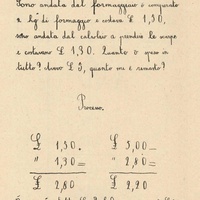 Sono andata dal formaggiaio ò comperato
2 hg di formaggio e costava £ 1,50.
sono andata dal calzolaio a prendere le scarpe
e costavano £ 1,30. Quanto ò speso in
tutto? Avevo £ 5, quanto mi è rimasto?
Processo.
£ 1,50 + £ 5,00 —
" 1,30 = " 2,80 =
£ 2,80 £ 2,20